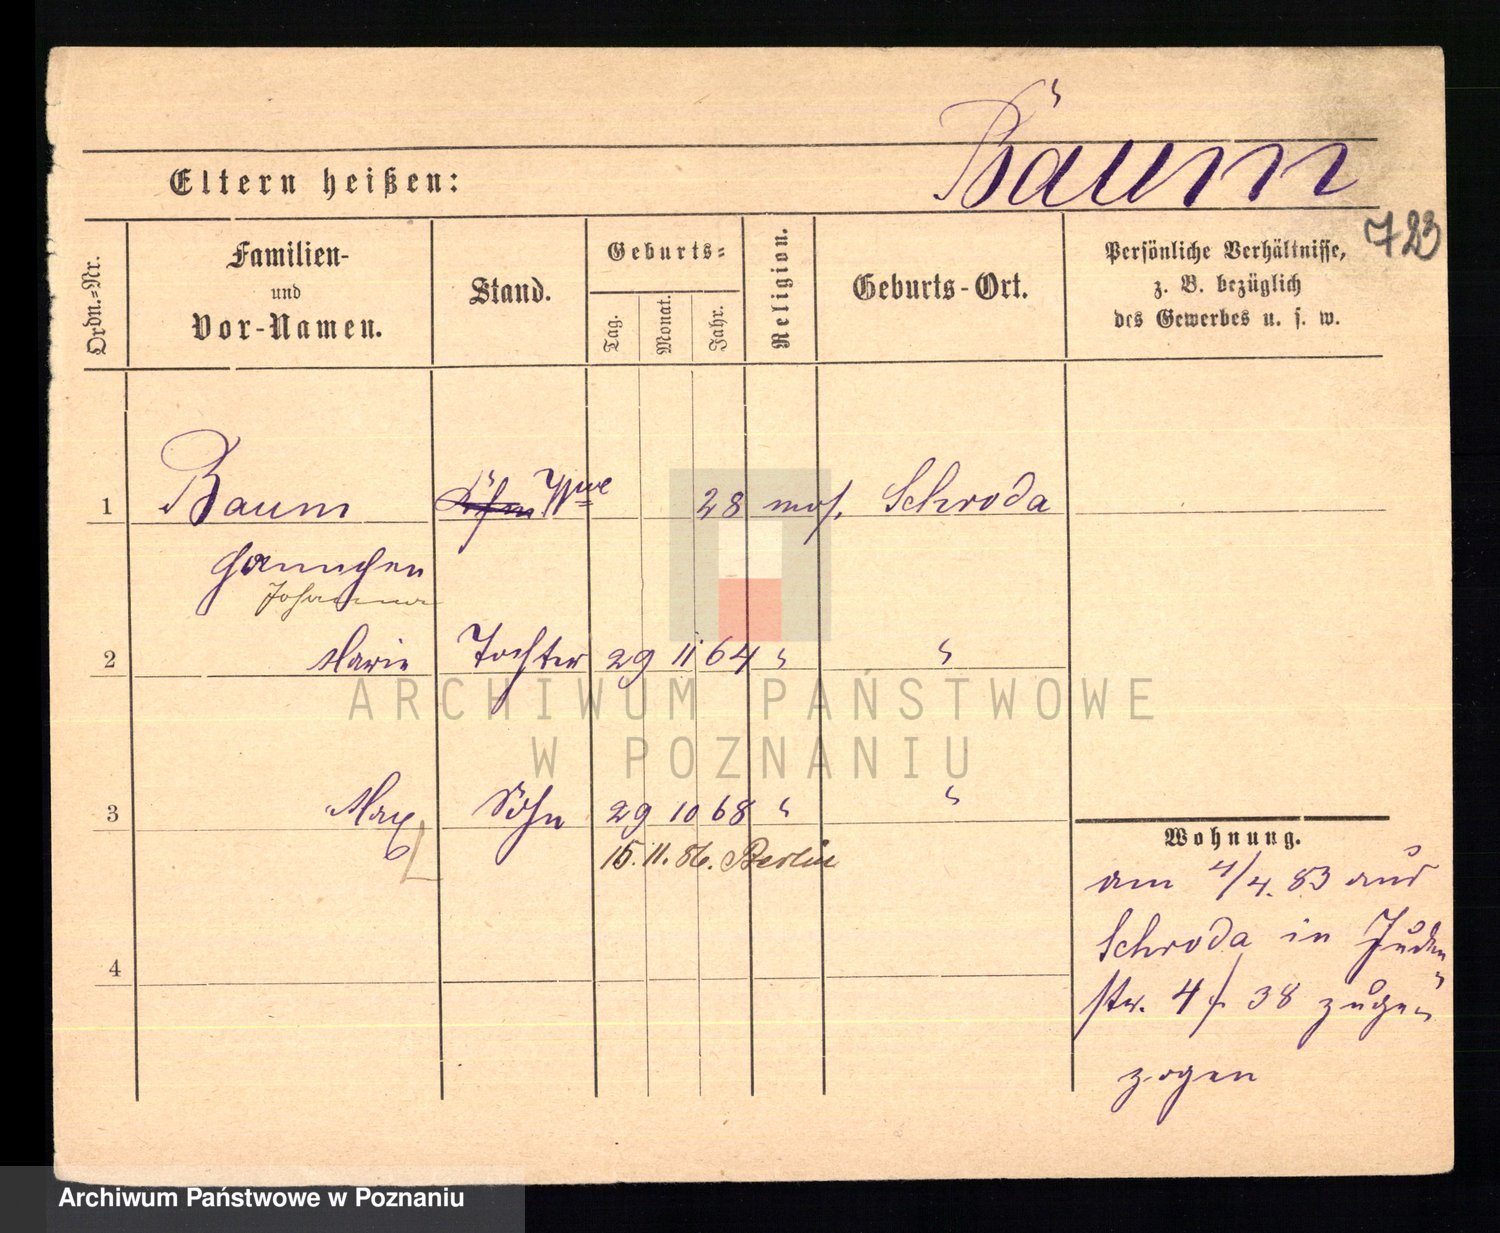 Baum
Eltern heißen:
723
Ordn.=Nr.
Familien-
und
Vor-Namen.
Stand.
Geburts=
Tag.
Monat.
Jahr.
Religion.
Geburts-Ort.
Persönliche Verhältnisse,
z. B. bezüglich
des Gewerbes u. s. w.
1 Baum Wwe 28 mos. Schroda
Hannchen
Johanna
2 Marie Tochter 29 11 64 " "
ARCHIWUM PAŃSTWOWE
W POZNANIU
3 Max Sohn 29 10 68 " "
15. 11. 86. Berlin
Wohnung.
am 4/4. 83 aus
Schroda in Juden
str. 4/ 38 zuge=
zogen
4
Archiwum Państwowe w Poznaniu